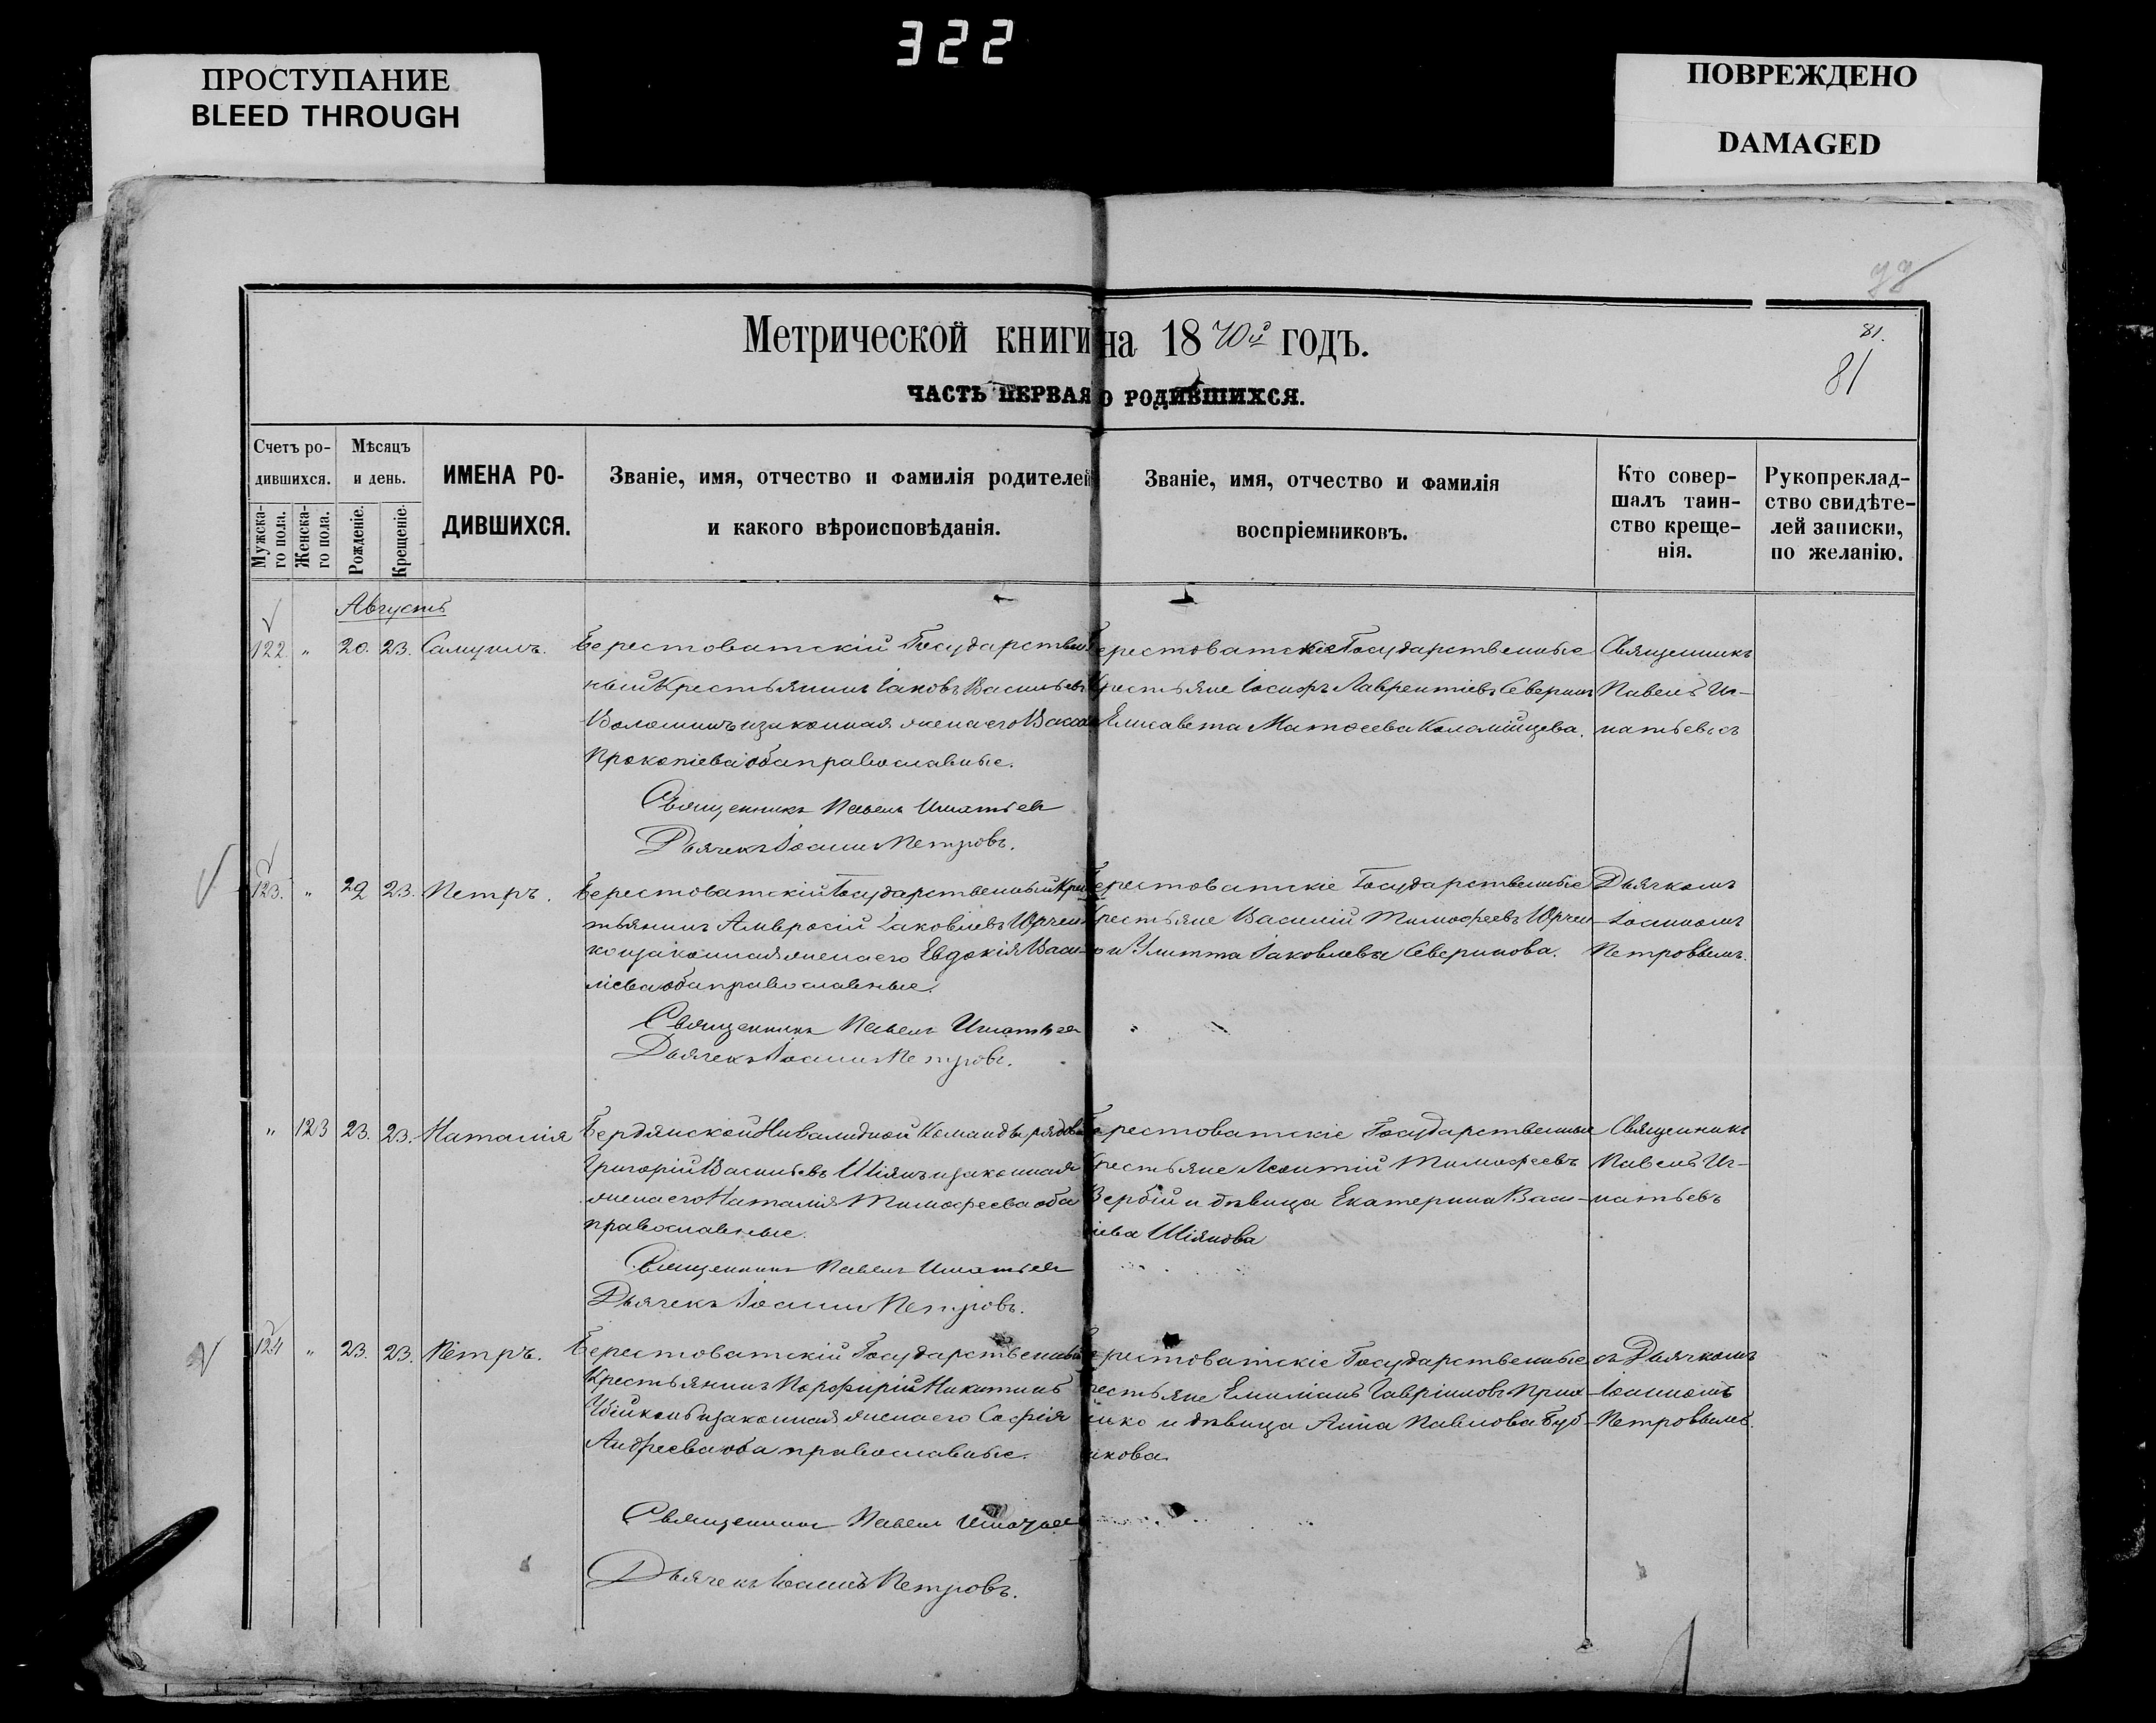 322
ПРОСТУПАНИЕ
BLEED THROUGH
ПОВРЕЖДЕНО
DAMAGED
81.
81
Метрической книги на 1870й годъ.
ЧАСТЬ ПЕРВАЯ О РОДИВШИХСЯ.
Счетъ ро-
дившихся.
Мужска-
го пола.
Женска-
го пола.
Мѣсяцъ
и день.
Рожденіе.
Крещеніе.
ИМЕНА РО-
ДИВШИХСЯ.
Званіе, имя, отчество и фамилія родителей
и какого вѣроисповѣданія.
Званіе, имя, отчество и фамилія
воспріемниковъ.
Кто совер-
шалъ таин-
ство креще-
нія.
Рукопреклад-
ство свидѣте-
лей записки,
по желанію.
Августъ
122. " 20. 23. Самуилъ.
Берестоватскій Государствен
ный Крестьянинъ Іаковъ Васильевъ
Волошинъ и законная жена его Васса
Прокопіева оба православные.
Священникъ Павелъ Игнатьев
Дьячекъ Іоаннъ Петровъ.
Берестоватскіе Государственные
Крестьяне Іосифъ Лаврентіевъ Северинъ
Елисавета Матѳеева Коломійцева.
Священникъ
Павелъ Иг-
натьевъ съ
123. " 22 23. Петръ.
Берестоватскій Государственный Крес
тьянинъ Амвросій Іаковлевъ Юрчен
ко и законная жена его Евдокія Васи-
ліева оба православные.
Священникъ Павелъ Игнатьев
Дьячекъ Іоаннъ Петровъ.
Берестоватскіе Государственные
Крестьяне Василій Тимофеевъ Юрчен-
ко и Улитта Іаковлева Северинова.
Дьячкомъ
Іоанномъ
Петровымъ.
" 123 23. 23. Наталія
Бердянской Инвалидной Команды рядовой
Григорій Васильевъ Шіянъ и законная
жена его Наталія Тимофеева оба
православные.
Священникъ Павелъ Игнатьев
Дьячекъ Іоаннъ Петровъ.
Берестоватскіе Государственные
Крестьяне Леонтій Тимофеевъ
Вербій и дѣвица Екатерина Васи-
ліева Шіянова
Священникъ
Павелъ Иг-
натьевъ
124 " 23. 23. Петръ.
Берестоватскій Государственный
Крестьянинъ Порфирій Никитинъ
и законная жена его Софія
Андреева оба православные.
Священникъ Павелъ Игнатьев
Дьячекъ Іоаннъ Петровъ.
Берестоватскіе Государственные
Крестьяне Емиліанъ Гавріиловъ
и дѣвица Анна Павлова Буб-
никова.
съ Дьячкомъ
Іоанномъ
Петровымъ.